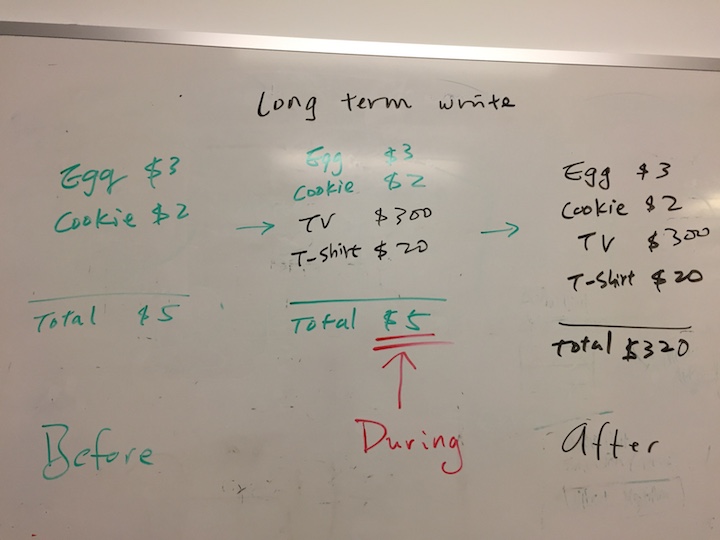 Long term write
Egg $3
Cookie $2
Total $5
Before
→
Egg $3
Cookie $2
TV $300
T-Shirt $20
Total $5
During
→
Egg $3
Cookie $2
TV $300
T-Shirt $20
Total $320
After